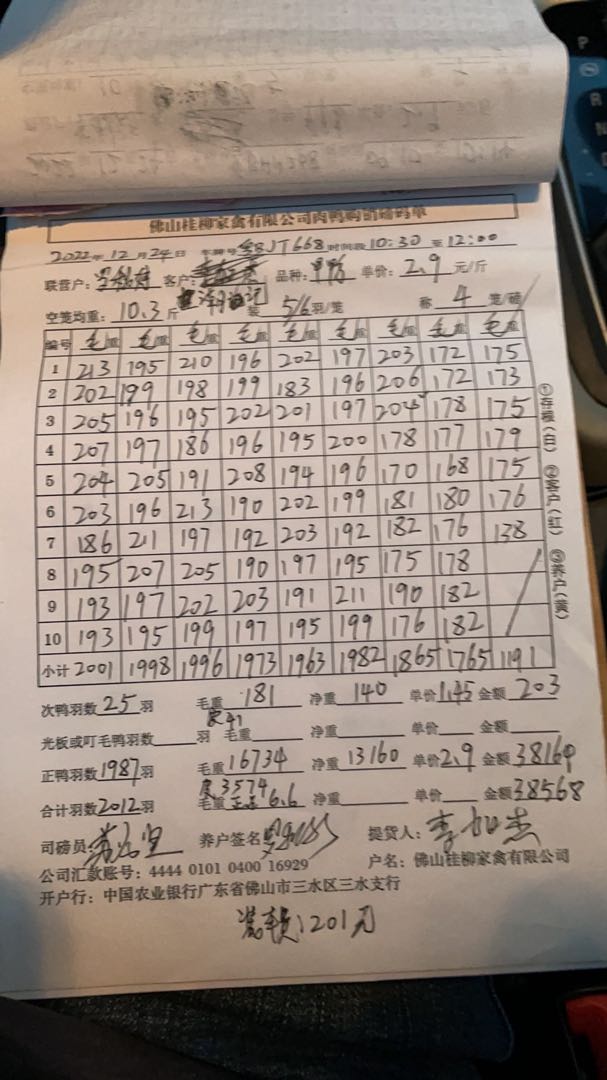 佛山桂柳家禽有限公司肉鸭购销磅码单
2022年12月24日 车牌号 粤BJT668 时间段 10:30 至 12:00
联营户: 客户: 品种: 单价: 2.9 元/斤
空笼均重: 10.3 斤 装 5/6 羽/笼 称 4 笼/磅
编号 毛重 毛重 毛重 毛重 毛重 毛重 毛重 毛重 毛重
1 213 195 210 196 202 197 203 172 175
2 202 199 198 199 183 196 206 172 173
3 205 196 195 202 201 197 204 178 175
4 207 197 186 196 195 200 178 177 179
5 204 205 191 208 194 196 170 168 175
6 203 196 213 190 202 199 181 180 176
7 186 211 197 192 203 192 182 176 138
8 195 207 205 190 197 195 175 178
9 193 197 202 203 191 211 190 182
10 193 195 199 197 195 199 176 182
小计 2001 1998 1996 1973 1963 1982 1865 1765 1191
①存根(白) ②客户(红) ③养户(黄)
次鸭羽数 25 羽 毛重 181 净重 140 单价 1.45 金额 203
皮 41
光板或叮毛鸭羽数 羽 毛重 净重 单价 金额
正鸭羽数 1987 羽 毛重 16734 净重 13160 单价 2.9 金额 38164
皮 3574
合计羽数 2012 羽 毛重 6.6 净重 单价 金额 38568
司磅员: 养户签名 提货人:
公司汇款账号: 4444 0101 0400 16929 户名: 佛山桂柳家禽有限公司
开户行: 中国农业银行广东省佛山市三水区三水支行
1201元